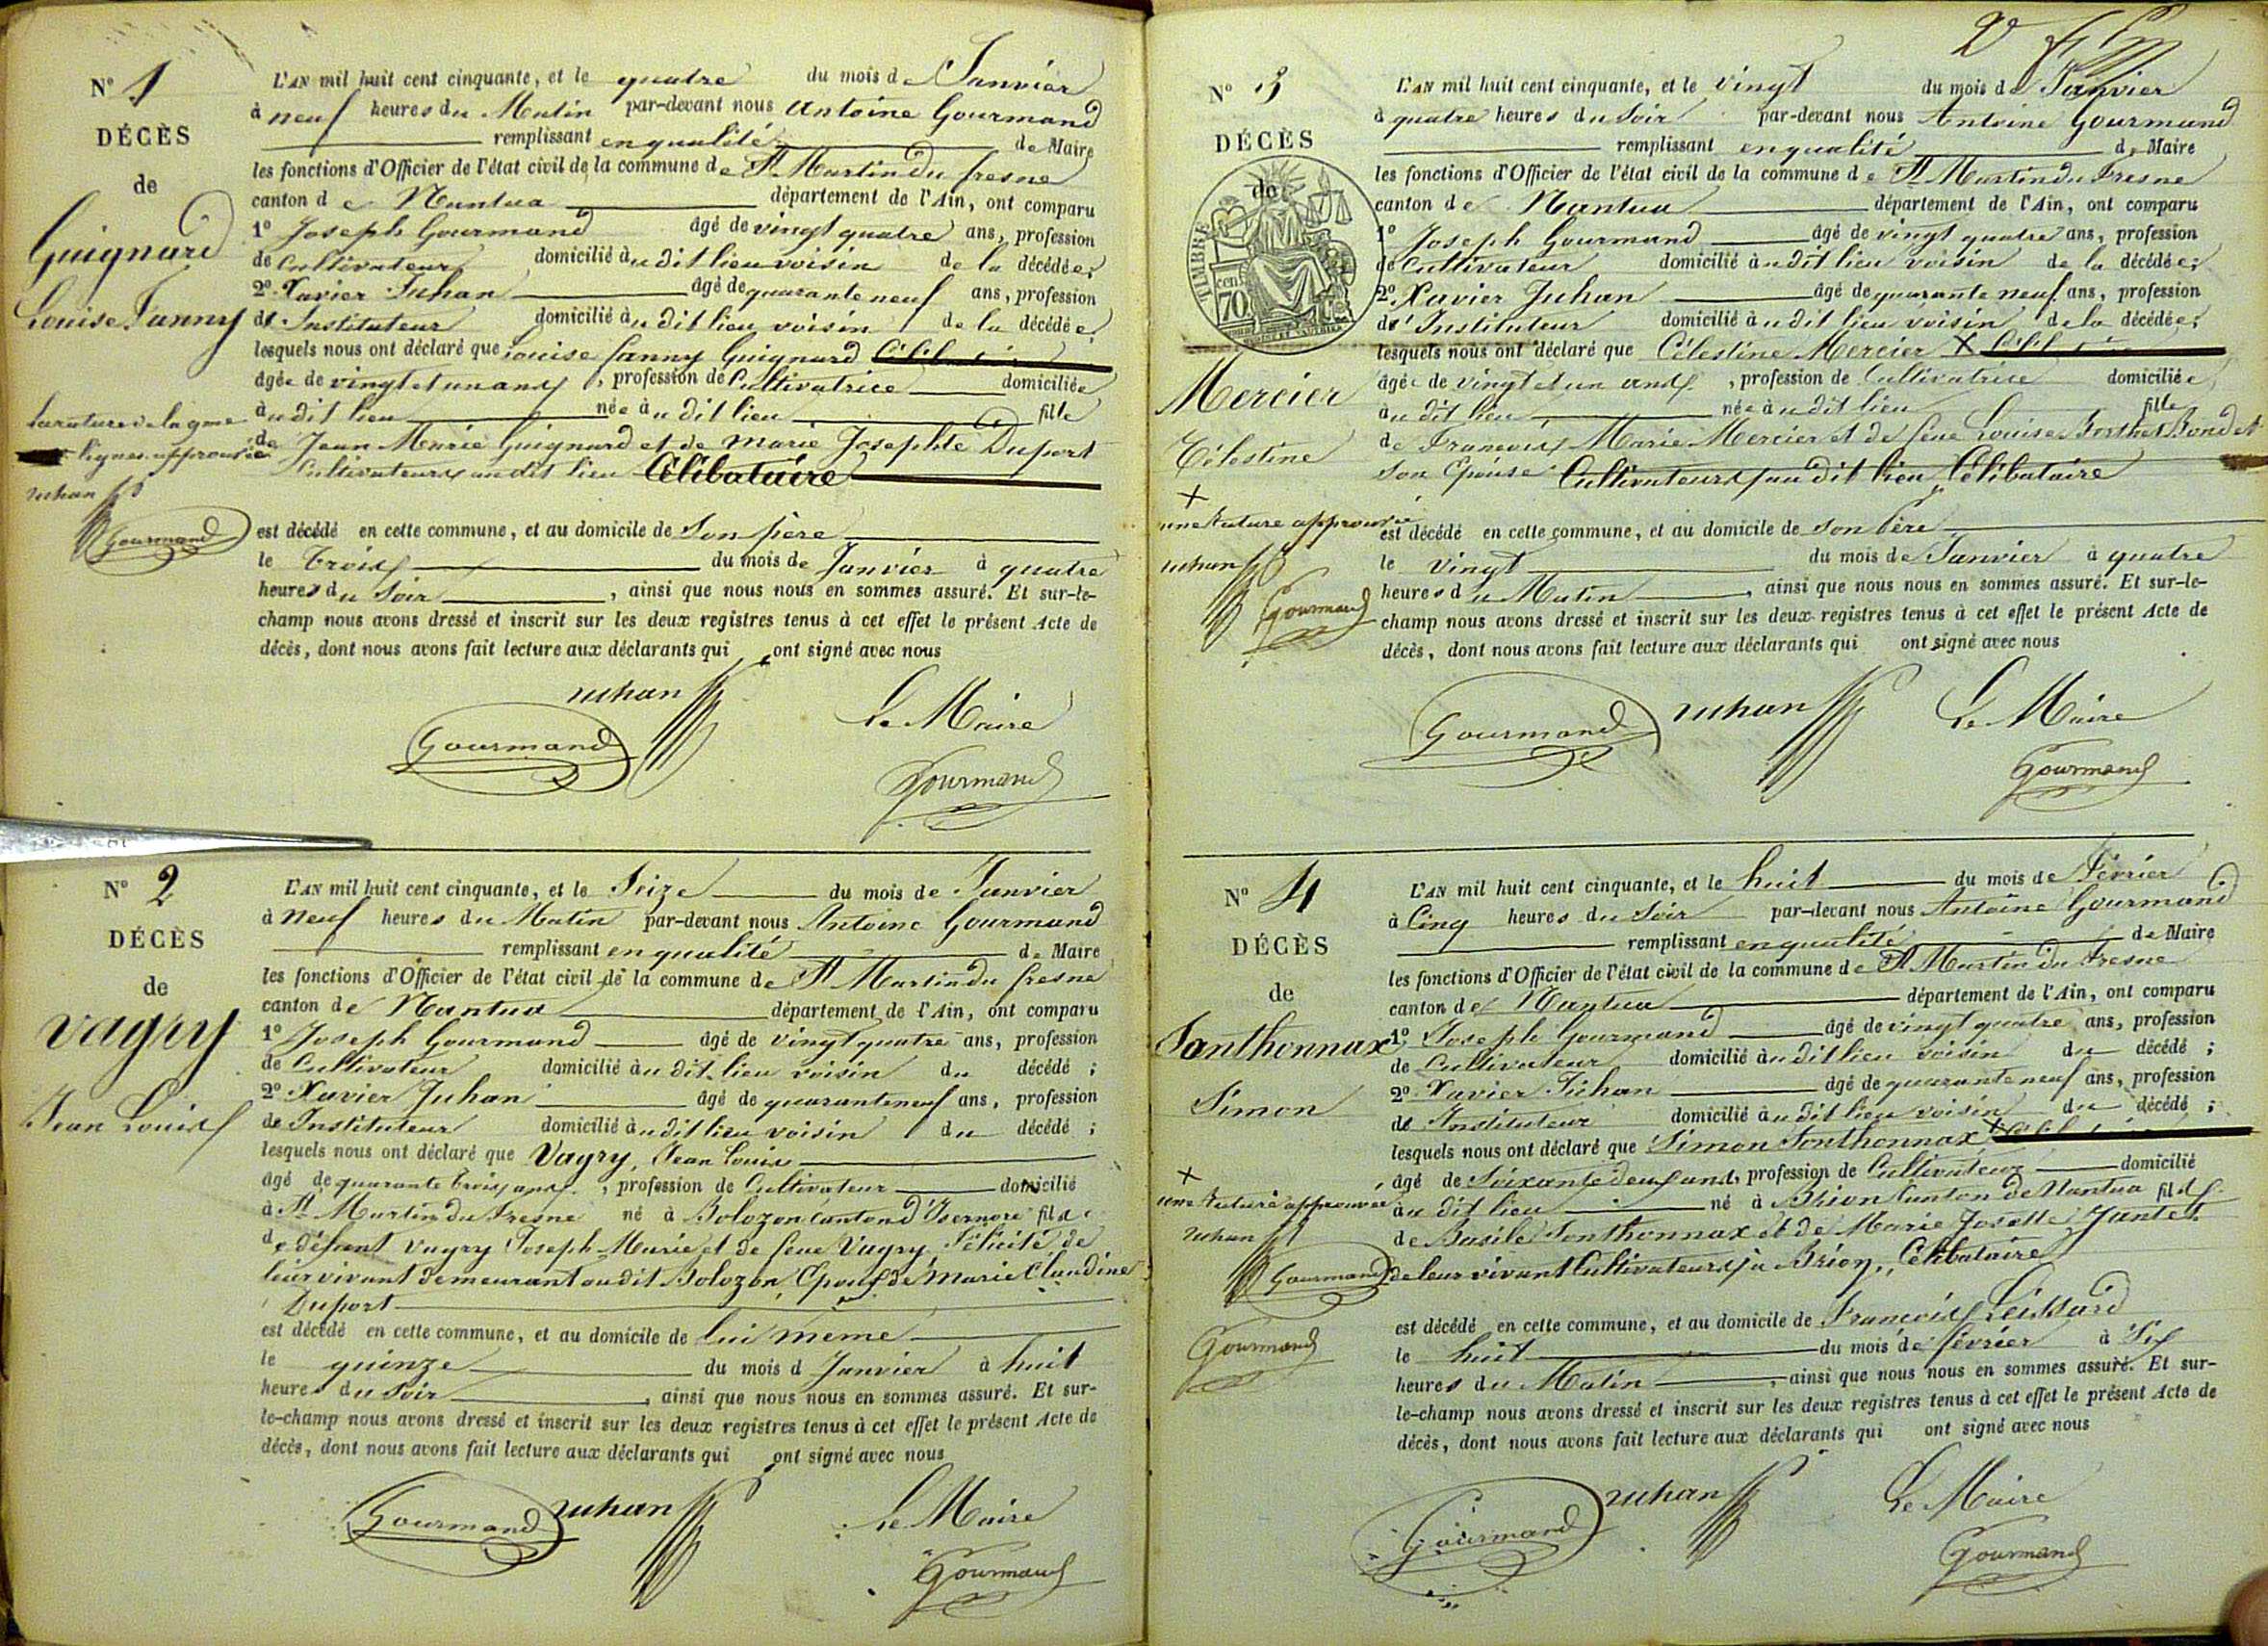 N° 1
DÉCÈS
de
Guignard
Louise Fanny
La rature de la 9me
lignes approuvée
Juhan
Gourmand
L'AN mil huit cent cinquante, et le quatre du mois de Janvier
à neuf heures du Matin par-devant nous Antoine Gourmand
remplissant en qualité de Maire
les fonctions d'Officier de l'état civil de la commune de St Martin du fresne
canton de Nantua département de l'Ain, ont comparu
1° Joseph Gourmand âgé de vingt quatre ans, profession
de Cultivateur domicilié àu dit lieu voisin de la décédée;
2° Xavier Juhan âgé de quarante neuf ans, profession
de Instituteur domicilié àu dit lieu voisin de la décédée
lesquels nous ont déclaré que Louise fanny Guignard
âgée de vingt et un ans, profession de Cultivatrice domiciliée
àu dit lieu née àu dit lieu fille
de Jean Marie Guignard et de Marie Josephte Duport
Cultivateurs au dit lieu Célibataire
est décédé en cette commune, et au domicile de Son père
le trois du mois de Janvier à quatre
heures du Soir, ainsi que nous nous en sommes assuré. Et sur-le-
champ nous avons dressé et inscrit sur les deux registres tenus à cet effet le présent Acte de
décès, dont nous avons fait lecture aux déclarants qui ont signé avec nous
Juhan
Gourmand
Le Maire
Gourmand
N° 2
DÉCÈS
de
Vagry
Jean Louis
L'AN mil huit cent cinquante, et le Seize du mois de Janvier
à neuf heures du Matin par-devant nous Antoine Gourmand
remplissant en qualité de Maire
les fonctions d'Officier de l'état civil de la commune de St Martin du fresne
canton de Nantua département de l'Ain, ont comparu
1° Joseph Gourmand âgé de vingt quatre ans, profession
de Cultivateur domicilié àu dit lieu voisin du décédé;
2° Xavier Juhan âgé de quarante neuf ans, profession
de Instituteur domicilié àu dit lieu voisin du décédé;
lesquels nous ont déclaré que Vagry, Jean Louis
âgé de quarante trois ans, profession de Cultivateur domicilié
à St Martin du Fresne né à Bolozon Canton d'Isernore fils
de défunt Vagry Joseph Marie et de feue Vagry Félicité de
leur vivant demeurant au dit Bolozon, Epoux de Marie Claudine
Duport
est décédé en cette commune, et au domicile de Lui même
le quinze du mois d Janvier à huit
heures du Soir, ainsi que nous nous en sommes assuré. Et sur-
le-champ nous avons dressé et inscrit sur les deux registres tenus à cet effet le présent Acte de
décès, dont nous avons fait lecture aux déclarants qui ont signé avec nous
Gourmand
Juhan
Le Maire
Gourmand
N° 3
DÉCÈS
de
TIMBRE
70 cent
Mercier
Célestine
X
une rature approuvée
Juhan
Gourmand
L'AN mil huit cent cinquante, et le vingt du mois de Janvier
à quatre heures du Soir par-devant nous Antoine Gourmand
remplissant en qualité de Maire
les fonctions d'Officier de l'état civil de la commune de St Martin du Fresne
canton de Nantua département de l'Ain, ont comparu
1° Joseph Gourmand âgé de vingt quatre ans, profession
de Cultivateur domicilié àu dit lieu voisin de la décédée;
2° Xavier Juhan âgé de quarante neuf ans, profession
de Instituteur domicilié àu dit lieu voisin de la décédée;
lesquels nous ont déclaré que Célestine Mercier X
âgée de vingt et un ans, profession de Cultivatrice domiciliée
àu dit lieu née àu dit lieu fille
de François Marie Mercier et de feue Louise Berthet Bondet
Son Epouse Cultivateurs au dit lieu, Célibataire
est décédé en cette commune, et au domicile de son Père
le vingt du mois de Janvier à quatre
heures du Matin, ainsi que nous nous en sommes assuré. Et sur-le-
champ nous avons dressé et inscrit sur les deux registres tenus à cet effet le présent Acte de
décès, dont nous avons fait lecture aux déclarants qui ont signé avec nous
Gourmand
Juhan
Le Maire
Gourmand
N° 4
DÉCÈS
de
Sonthonnax
Simon
X
une rature approuvée
Juhan
Gourmand
Gourmand
L'AN mil huit cent cinquante, et le huit du mois de Février
à Cinq heures du Soir par-devant nous Antoine Gourmand
remplissant en qualité de Maire
les fonctions d'Officier de l'état civil de la commune de St Martin du Fresne
canton de Nantua département de l'Ain, ont comparu
1° Joseph Gourmand âgé de vingt quatre ans, profession
de Cultivateur domicilié àu dit lieu voisin du décédé;
2° Xavier Juhan âgé de quarante neuf ans, profession
de Instituteur domicilié àu dit lieu voisin du décédé;
lesquels nous ont déclaré que Simon Sonthonnax X
âgé de Soixante deux ans, profession de Cultivateur domicilié
àu dit lieu né à Brion Canton de Nantua fils
de Basile Sonthonnax et de Marie Josette Jantet
de leur vivant Cultivateurs à Brion, Célibataire
est décédé en cette commune, et au domicile de François Leissard
le huit du mois de février à Six
heures du Matin, ainsi que nous nous en sommes assuré. Et sur-
le-champ nous avons dressé et inscrit sur les deux registres tenus à cet effet le présent Acte de
décès, dont nous avons fait lecture aux déclarants qui ont signé avec nous
Gourmand
Juhan
Le Maire
Gourmand